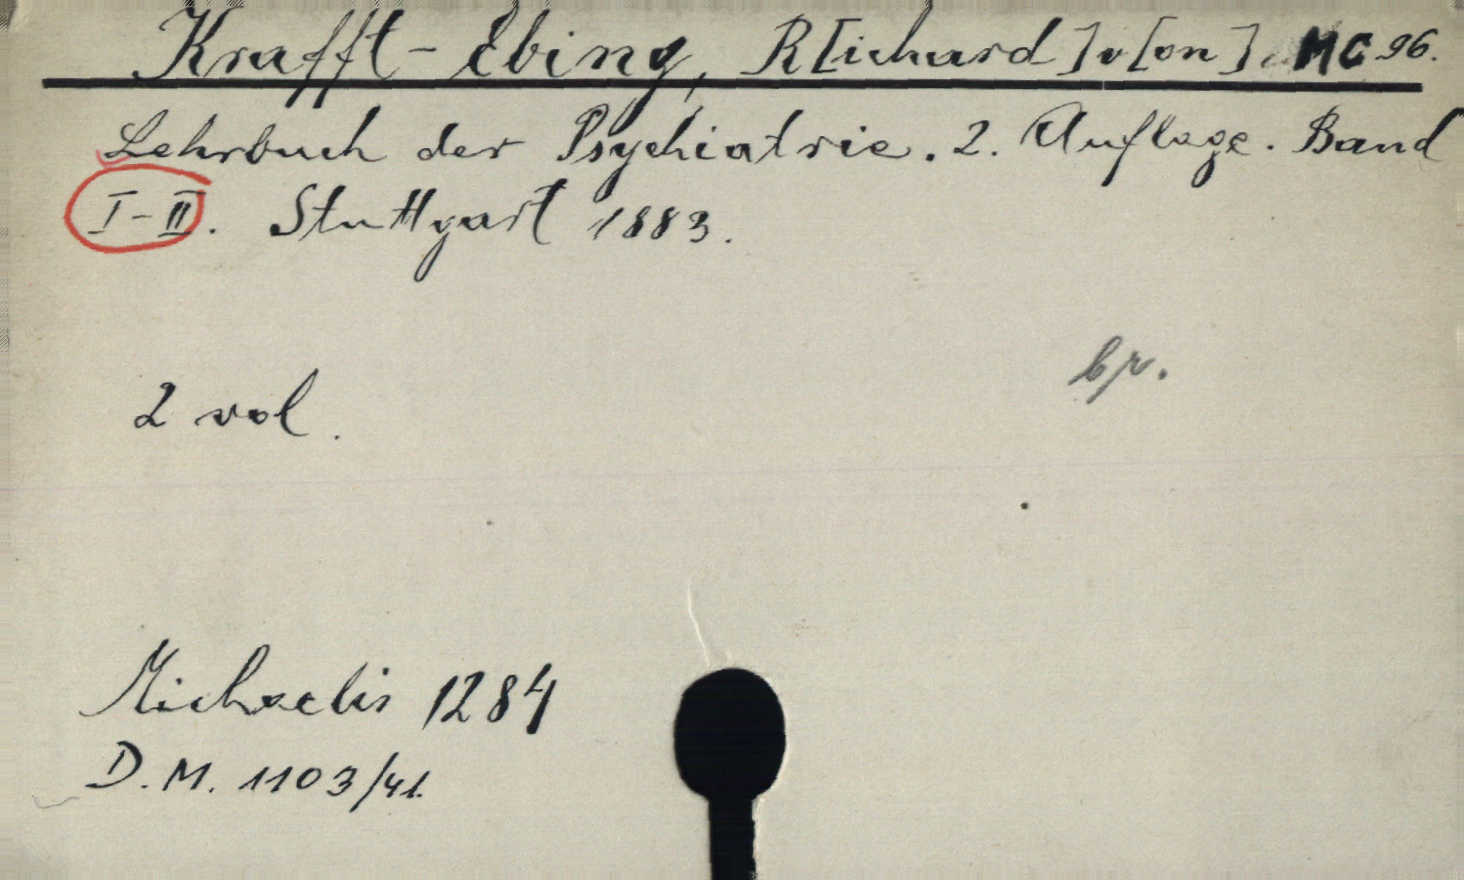 Krafft-Ebing, R[ichard] v[on]. MC 96.
Lehrbuch der Psychiatrie. 2. Auflage. Band
I-II. Stuttgart 1883.
2 vol.
Michaelis 1284
D.M. 1103/41.